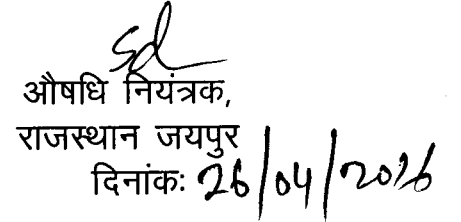 Sd
औषधि नियंत्रक,
राजस्थान जयपुर
दिनांकः 26/04/2016